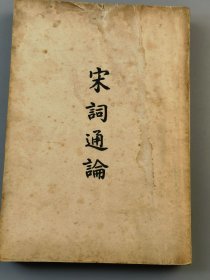 宋詞通論